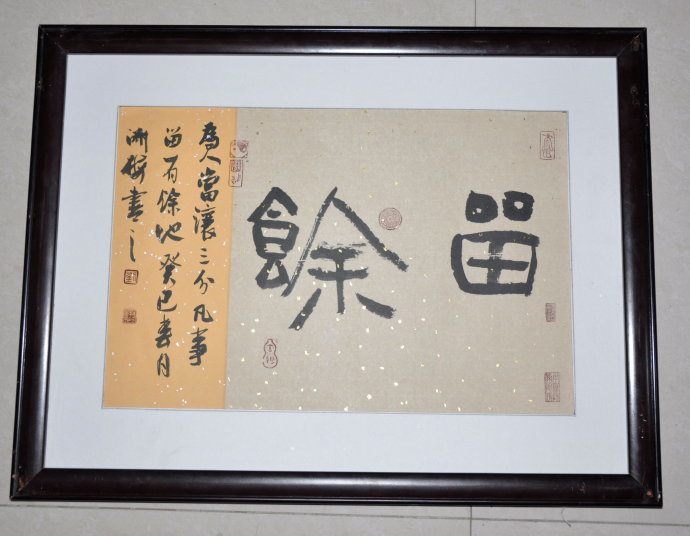 留餘
為人當讓三分凡事
留有餘地癸巳春月
書之